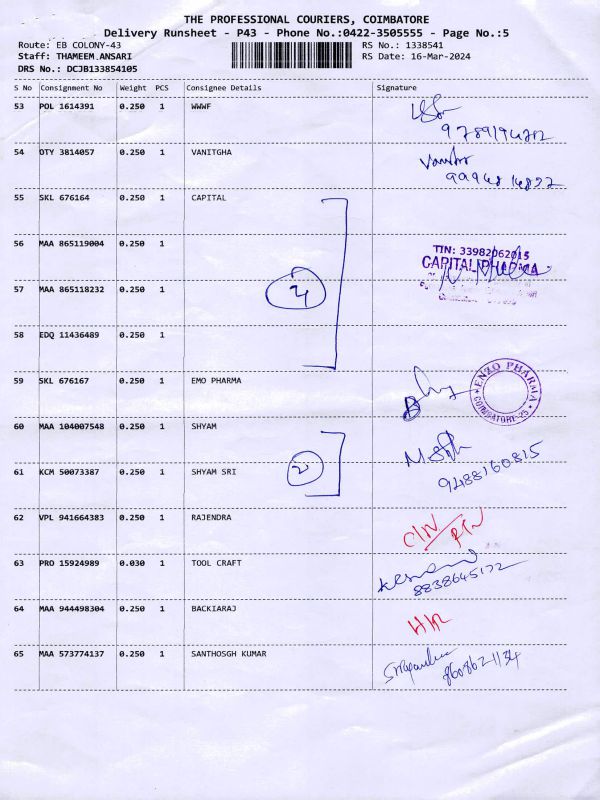 THE PROFESSIONAL COURIERS, COIMBATORE
Delivery Runsheet - P43 - Phone No.:0422-3505555 - Page No.:5
Route: EB COLONY-43 RS No.: 1338541
Staff: THAMEEM.ANSARI RS Date: 16-Mar-2024
DRS No.: DCJB133854105
S No Consignment No Weight PCS Consignee Details Signature
53 POL 1614391 0.250 1 WWWF
9789194282
54 OTY 3814057 0.250 1 VANITGHA
55 SKL 676164 0.250 1 CAPITAL
56 MAA 865119004 0.250 1
TIN: 33982062015
CAPITAL PHARMA
57 MAA 865118232 0.250 1 4
58 EDQ 11436489 0.250 1
59 SKL 676167 0.250 1 EMO PHARMA
ENZO PHARMA
COIMBATORE-25
60 MAA 104007548 0.250 1 SHYAM
61 KCM 50073387 0.250 1 SHYAM SRI 2
9488160815
62 VPL 941664383 0.250 1 RAJENDRA
63 PRO 15924989 0.030 1 TOOL CRAFT
8838645172
64 MAA 944498304 0.250 1 BACKIARAJ
65 MAA 573774137 0.250 1 SANTHOSGH KUMAR
8608621134